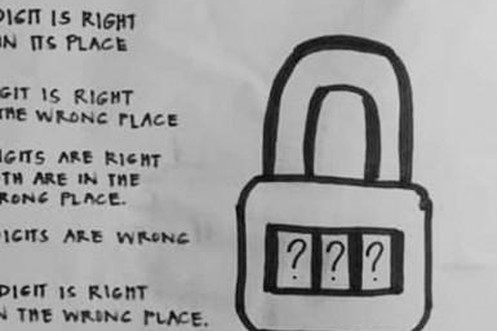 DIGIT IS RIGHT
IN ITS PLACE
GIT IS RIGHT
THE WRONG PLACE
IGITS ARE RIGHT
TH ARE IN THE
RONG PLACE.
DIGITS ARE WRONG
DIGIT IS RIGHT
N THE WRONG PLACE.
? ? ?